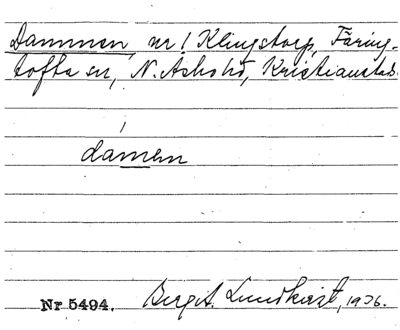 Dammen, nr 1 Klingstorp, Färing-
tofta sn, N. Åsbo hd, Kristianstads
dámen
Nr 5494. Birgit Lundkvist, 1936.